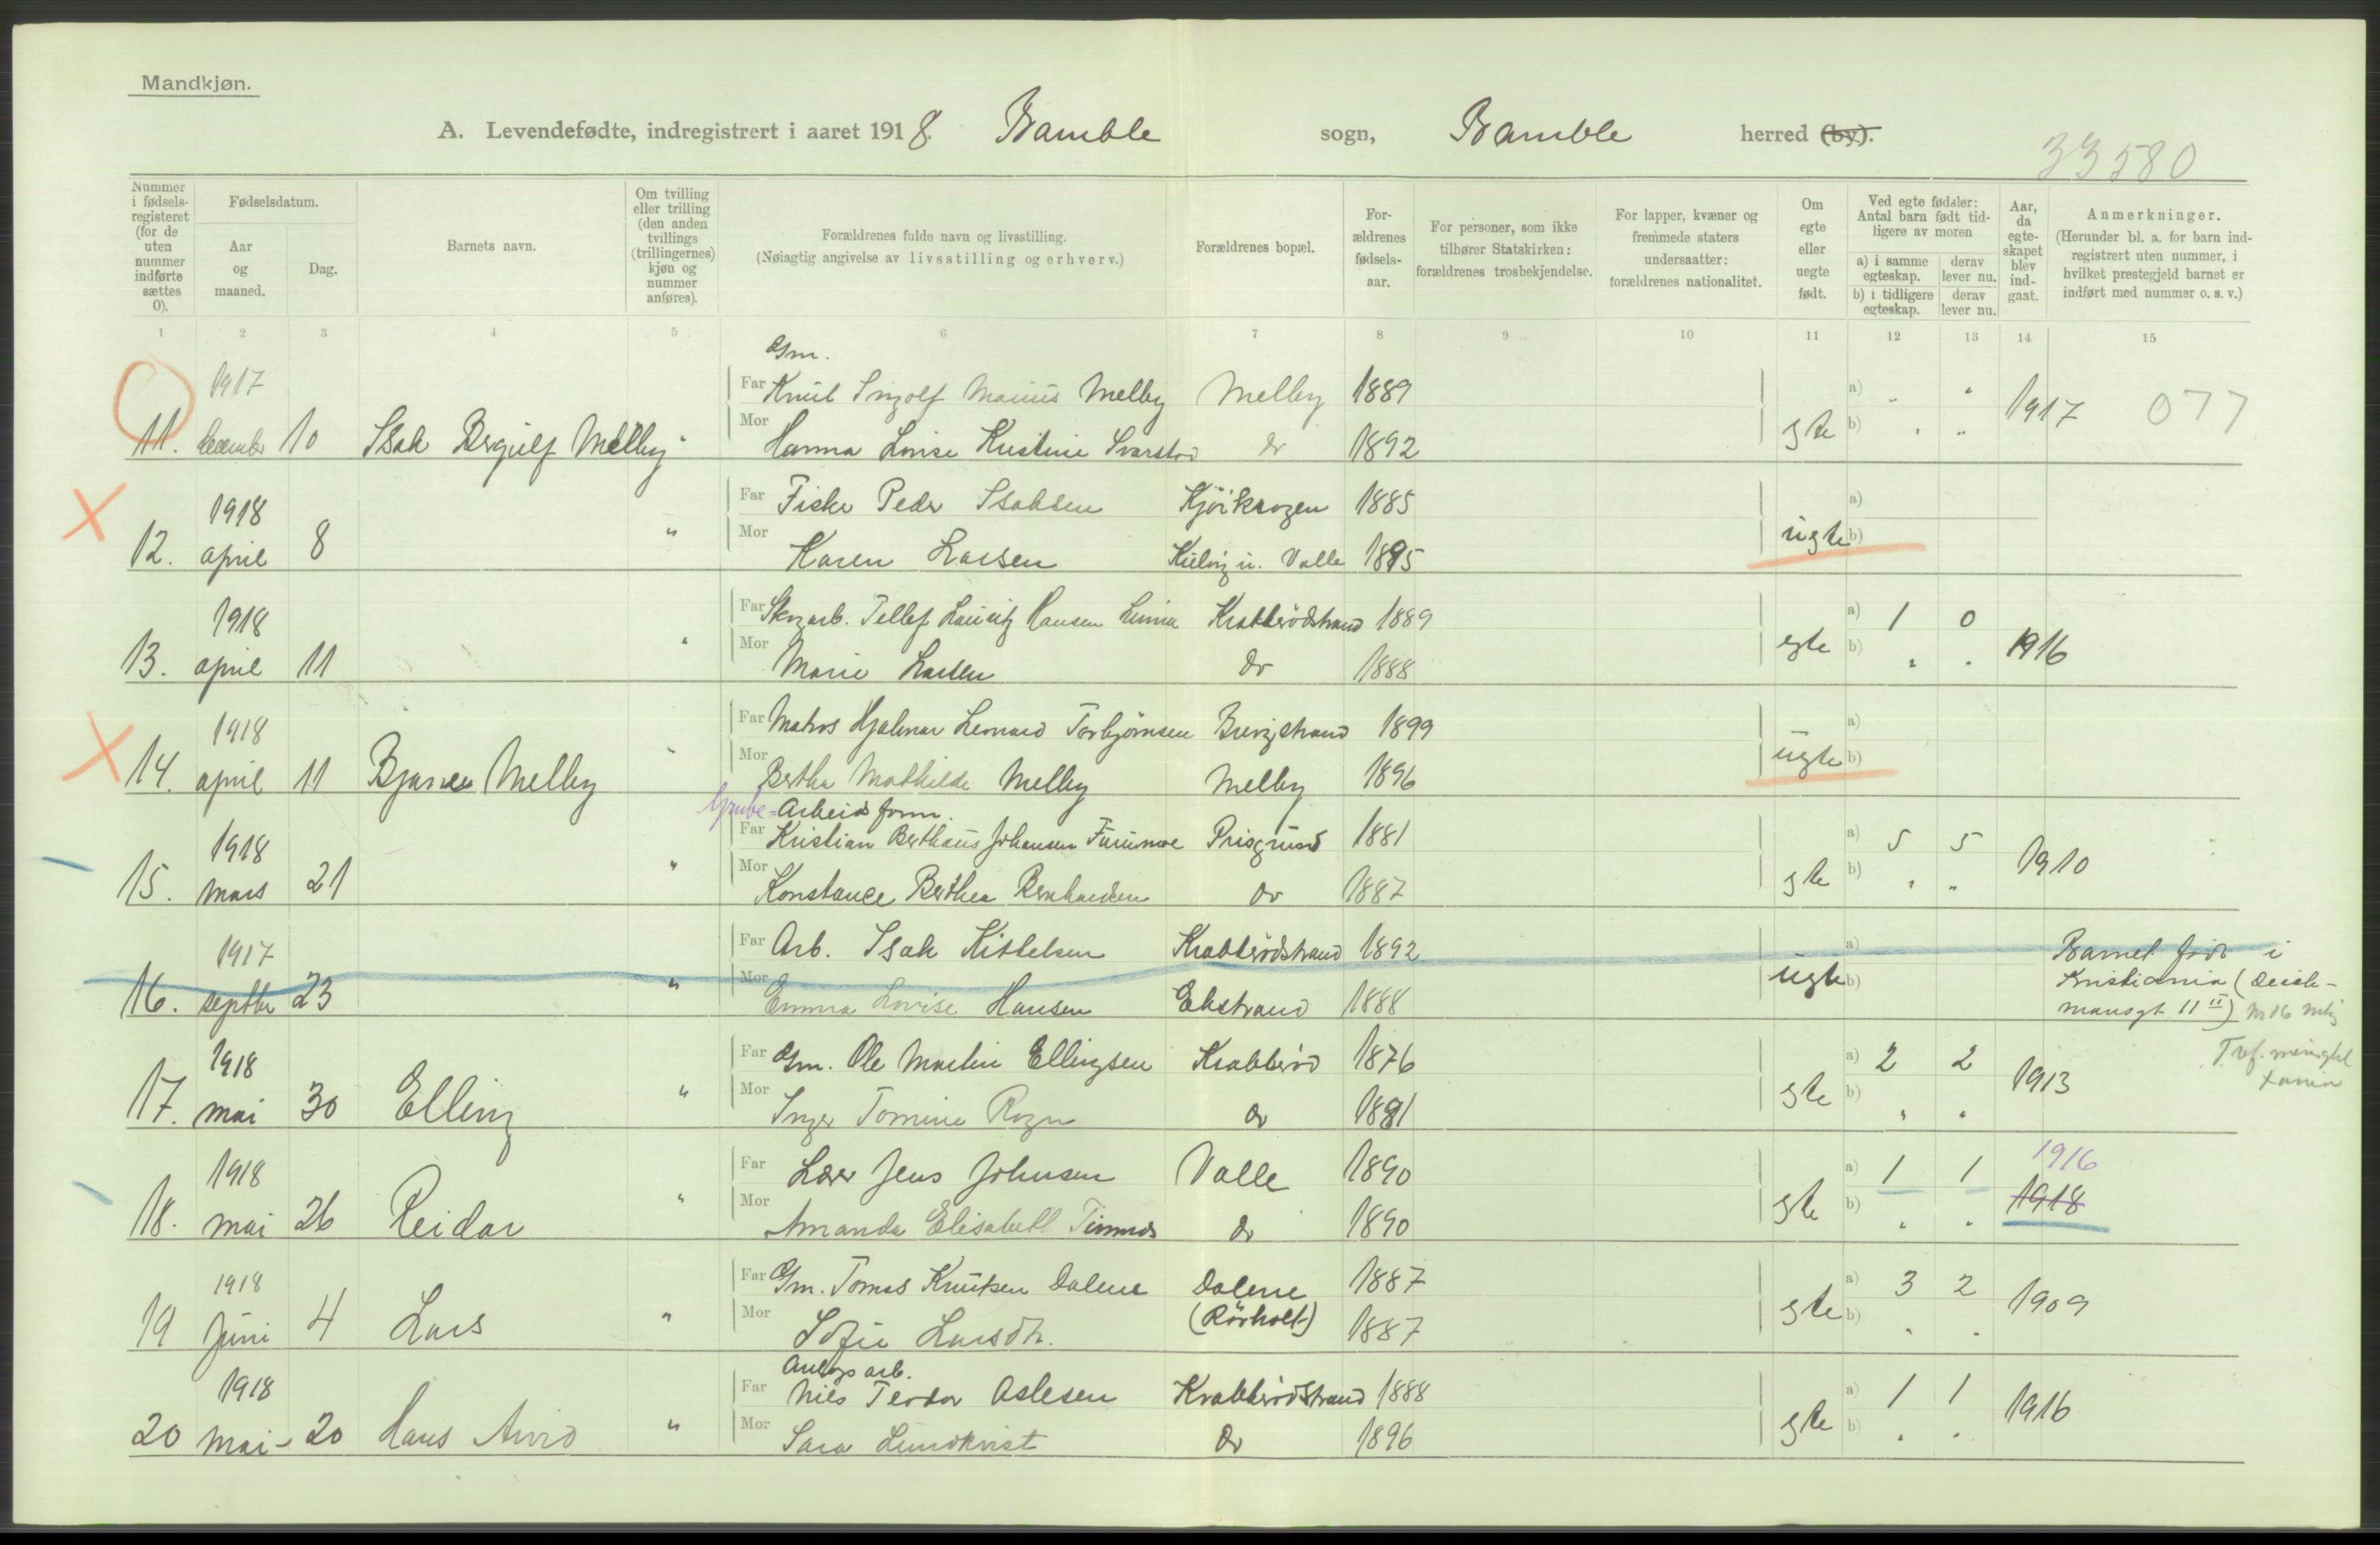 Mandkjøn.
A. Levendefødte, indregistrert i aaret 1918. Bamble sogn, Bamble herred (by).
33580
Nummer i fødsels-registeret (for de uten nummer indførte sættes 0).
Fødselsdatum.
Aar og maaned.
Dag.
Barnets navn.
Om tvilling eller trilling (den anden tvillings (trillingernes) kjøn og nummer anføres).
Forældrenes fulde navn og livsstilling.
(Nøiagtig angivelse av livsstilling og erhverv.)
Forældrenes bopæl.
For-ældrenes fødsels-aar.
For personer, som ikke tilhører Statskirken: forældrenes trosbekjendelse.
For lapper, kvæner og fremmede staters undersaatter: forældrenes nationalitet.
Om egte eller uegte født.
Ved egte fødsler: Antal barn født tid-ligere av moren
a) i samme egteskap. derav lever nu.
b) i tidligere egteskap. derav lever nu.
Aar, da egte-skapet blev ind-gaat.
Anmerkninger.
(Herunder bl. a. for barn ind-registrert uten nummer, i hvilket prestegjeld barnet er indført med nummer o. s. v.)
1 2 3 4 5 6 7 8 9 10 11 12 13 14 15
Gm.
1917 Far Knut Ingolf Marius Melby Melby 1889 a) " " 1917 077
11. december 10 Isak Bergulf Melby " Mor Hanna Lovise Kristine Svarstad do 1892 egte b) " "
1918 Far Fisker Peder Isaksen Kjøikrogen 1885 a)
12. april 8 " Mor Karen Larsen Valle 1895 uegte b)
1918 Far Skogarb. Tellef Lauritz Hansen Krabberødstrand 1889 a) 1 0
13. april 11 " Mor Marie Larsen do 1888 egte b) " " 1916
1918 Far Matros Hjalmar Lenard Torbjørnsen 1899 a)
14. april 11 Bjarne Melby " Mor Bertha Mathilde Melby Melby 1896 uegte b)
Grube-Arbeids form.
1918 Far Kristian Berthaus Johansen Furumoe Prisgrund 1881 a) 5 5 1910
15. mars 21 " Mor Konstance Berthea Bernhardsen do 1887 egte b) " "
1917 Far Arb. Isak Kittelsen Krabberødstrand 1892 a) Barnet født i
16. septbr 23 " Mor Emma Lovise Hansen Ekstrand 1888 uegte b) Kristiania (Deich-
mansgt 11 II) Nr 16
1918 Far Gm. Ole Martin Ellingsen Krabberød 1876 a) 2 2 1913 Tref. menighet
17. mai 30 Elling " Mor Inger Tomine Rogn do 1881 egte b) " "
1918 Far Lærer Jens Johnsen Valle 1890 a) 1 1 1916
18. mai 26 Reidar " Mor Amanda Elisabeth do 1890 egte b) " " 1918
1918 Far Gm. Tomas Knutsen Dalene Dalene 1887 a) 3 2 1909
19 Juni 4 Lars " Mor Sofie Larsdtr. (Rørholt) 1887 egte b) " "
Anlegs arb.
1918 Far Nils Teodor Aslesen Krabberødstrand 1888 a) 1 1 1916
20 mai - 20 Hans Arvid " Mor Sara Lundkvist do 1896 egte b) " "